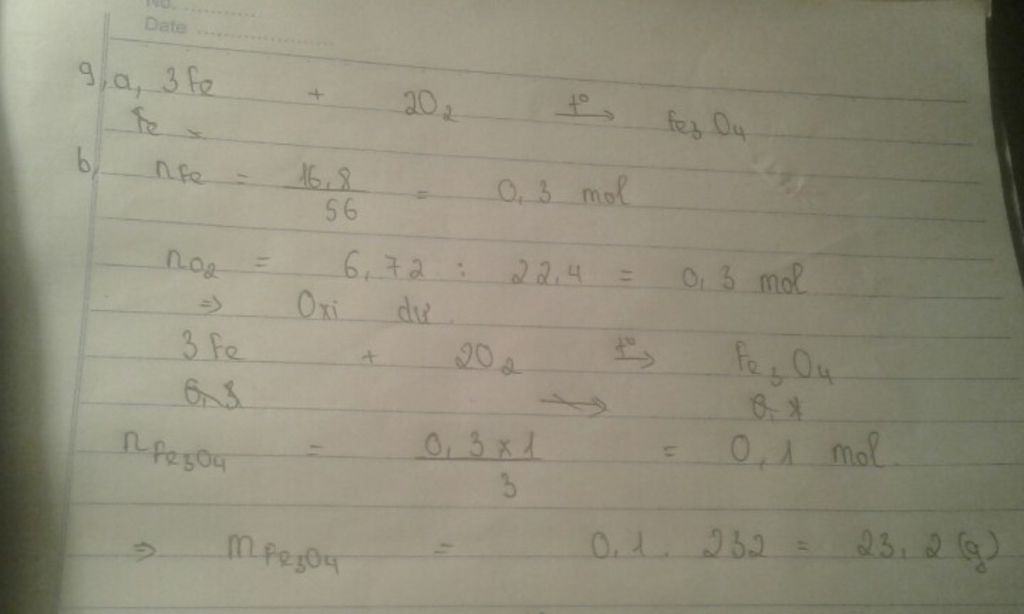 No. ..........
Date ....................
9, a, 3Fe + 2O₂ t°→ Fe₃O₄
Fe
b, nFe = 16,8/56 = 0,3 mol
nO₂ = 6,72 : 22,4 = 0,3 mol
=> Oxi dư.
3Fe + 2O₂ t°→ Fe₃O₄
0,3 →
nFe₃O₄ = 0,3 x 1/3 = 0,1 mol.
=> mFe₃O₄ = 0,1. 232 = 23,2 (g)